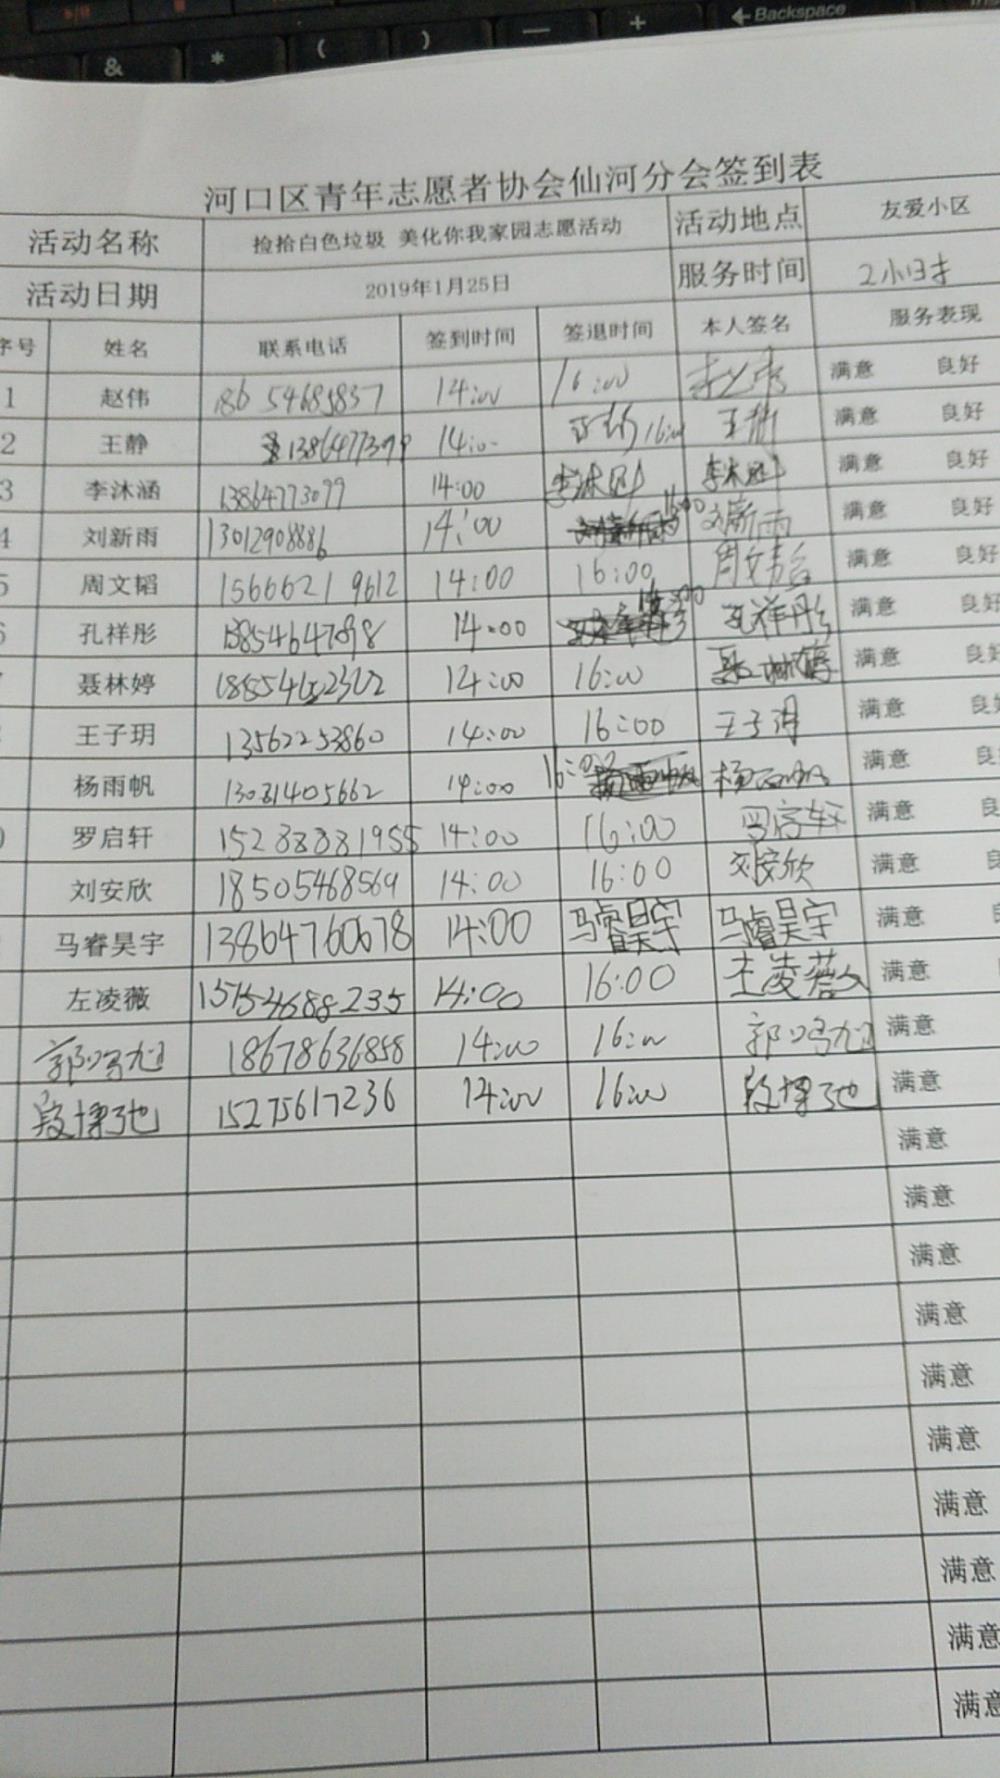 & * ( ) — + Backspace
河口区青年志愿者协会仙河分会签到表
活动名称 捡拾白色垃圾 美化你我家园志愿活动 活动地点 友爱小区
活动日期 2019年1月25日 服务时间 2小时
序号 姓名 联系电话 签到时间 签退时间 本人签名 服务表现
1 赵伟 18654685837 14:00 16:00 赵伟 满意 良好
2 王静 14:00 16:00 王静 满意 良好
3 李沐涵 13864773099 14:00 满意 良好
4 刘新雨 13012908886 14:00 16:00 刘新雨 满意 良好
5 周文韬 15666219612 14:00 16:00 周文韬 满意 良好
6 孔祥彤 13854647098 14:00 16:00 孔祥彤 满意 良好
聂林婷 14:00 16:00 聂林婷 满意 良好
王子玥 13562253860 14:00 16:00 王子玥 满意 良好
杨雨帆 13081405662 14:00 16:00 杨雨帆 满意 良
罗启轩 15288881955 14:00 16:00 罗启轩 满意 良
刘安欣 18505468569 14:00 16:00 刘安欣 满意 良
马睿昊宇 13864760678 14:00 马睿昊宇 马睿昊宇 满意
左凌薇 14:00 16:00 左凌薇 满意
郭鸣旭 18678636858 14:00 16:00 郭鸣旭 满意
段博弛 15275617236 14:00 16:00 段博弛 满意
满意
满意
满意
满意
满意
满意
满意
满意
满意
满意